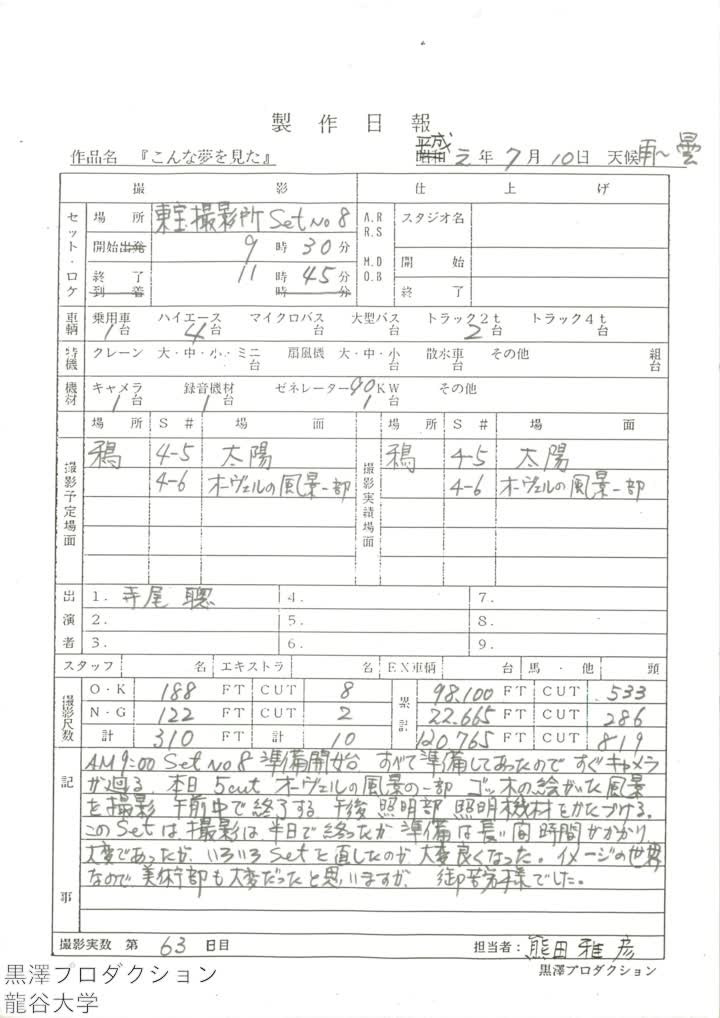 製作日報
作品名 『こんな夢を見た』 平成 元年 7月 10日 天候 雨〜曇
撮影 仕上げ
セット・ロケ 場所 東宝撮影所 Set No 8 A.R R.S スタジオ名
開始出発 9時 30分 M.D D.B 開始
終了 11時 45分 終了
到着 時 分
車輌 乗用車 1台 ハイエース 4台 マイクロバス 台 大型バス 台 トラック2t 2台 トラック4t 台
特機 クレーン 大・中・小・ミニ 台 扇風機 大・中・小 台 散水車 台 その他 組 台
機材 キャメラ 1台 録音機材 1台 ゼネレーター 90KW 1台 その他
場所 S# 場面 場所 S# 場面
撮影予定場面 鴉 4-5 太陽 撮影実績場面 鴉 4-5 太陽
4-6 オーヴェルの風景一部 4-6 オーヴェルの風景一部
出演者 1. 寺尾 聰 4. 7.
2. 5. 8.
3. 6. 9.
スタッフ 名 エキストラ 名 EX車輌 台 馬・他 頭
撮影尺数 O・K 188 FT CUT 8 累計 98.100 FT CUT 533
N・G 122 FT CUT 2 22.665 FT CUT 286
計 310 FT 計 10 120.765 FT CUT 819
記事 AM9:00 Set No 8 準備開始 すべて準備してあったので すぐキャメラ
が廻る。本日 5cut オーヴェルの風景の一部 ゴッホの絵がた風景
を撮影 午前中で終了する 午後 照明部 照明機材をかたづける。
このSetは、撮影は半日で終ったが 準備は長い間 時間がかかり
大変であったが、いろいろ Setを直したのが大変良くなった。イメージの世界
なので 美術部も大変だったと思いますが、御苦労様でした。
撮影実数 第 63 日目 担当者: 熊田 雅彦
黒澤プロダクション
黒澤プロダクション
龍谷大学